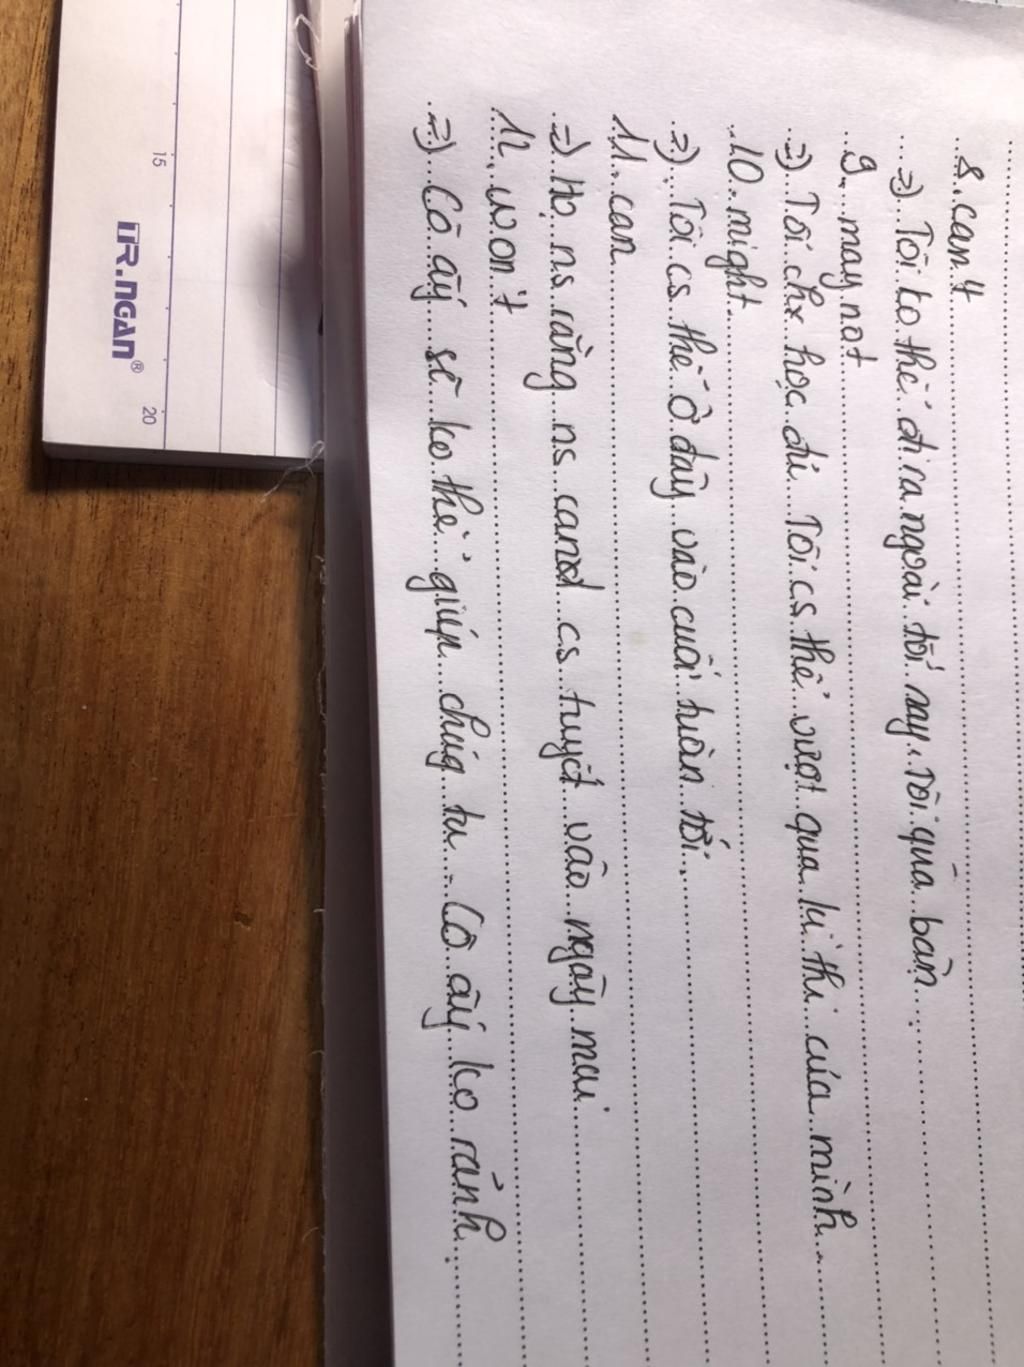 8. can't
=) Tôi ko thể đi ra ngoài tối nay. Tôi quá bận
9. may not
=) Tôi chx học đi. Tôi cs thể vượt qua kì thi của mình
10. might
=) Tôi cs thể ở đây vào cuối tuần tới
11. can
=) Họ ns rằng ns canol cs tuyết vào ngày mai
12. won't
=) Cô ấy sẽ ko thể giúp chúng ta - Cô ấy ko rảnh
15
20
TR.NGAN®